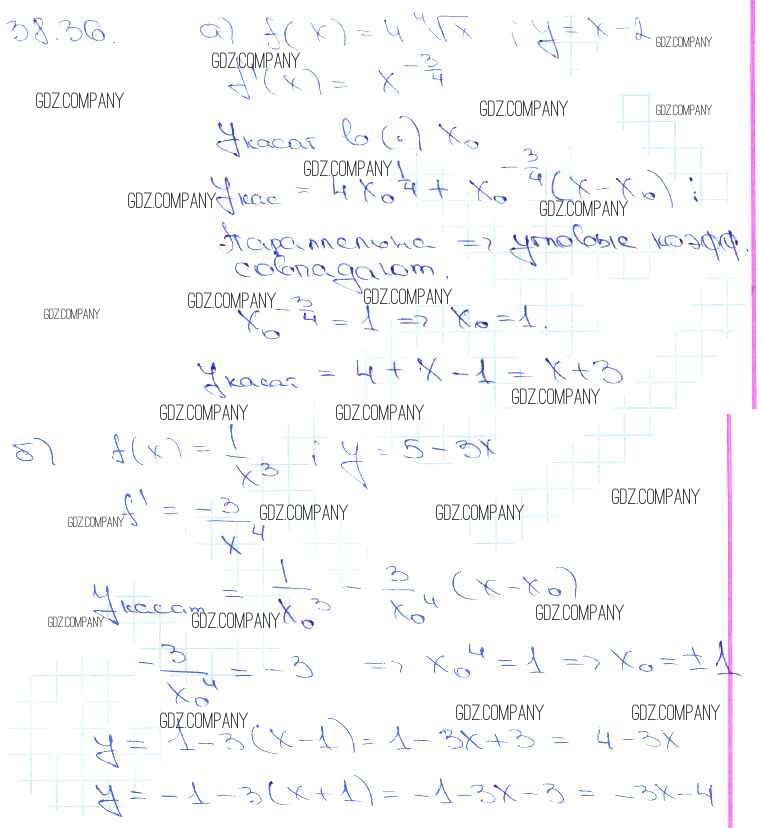 38.36. а) f(x) = 4 ⁴√x ; y = x - 2
GDZ.COMPANY
GDZ.COMPANY
f'(x) = x^(-3/4)
GDZ.COMPANY
GDZ.COMPANY
GDZ.COMPANY
y касат в (·) x₀
GDZ.COMPANY
y кас = 4x₀^(1/4) + x₀^(-3/4) (x - x₀) ;
GDZ.COMPANY
GDZ.COMPANY
Параллельна => угловые коэфф.
совпадают.
GDZ.COMPANY
GDZ.COMPANY
GDZ.COMPANY
x₀^(-3/4) = 1 => x₀ = 1.
y касат = 4 + x - 1 = x + 3
GDZ.COMPANY
GDZ.COMPANY
GDZ.COMPANY
б) f(x) = 1/x³ ; y = 5 - 3x
GDZ.COMPANY
f' = -3/x⁴
GDZ.COMPANY
GDZ.COMPANY
GDZ.COMPANY
y касат = 1/x₀³ - 3/x₀⁴ (x - x₀)
GDZ.COMPANY
GDZ.COMPANY
GDZ.COMPANY
-3/x₀⁴ = -3 => x₀⁴ = 1 => x₀ = ±1
GDZ.COMPANY
GDZ.COMPANY
GDZ.COMPANY
y = 1 - 3(x - 1) = 1 - 3x + 3 = 4 - 3x
y = -1 - 3(x + 1) = -1 - 3x - 3 = -3x - 4